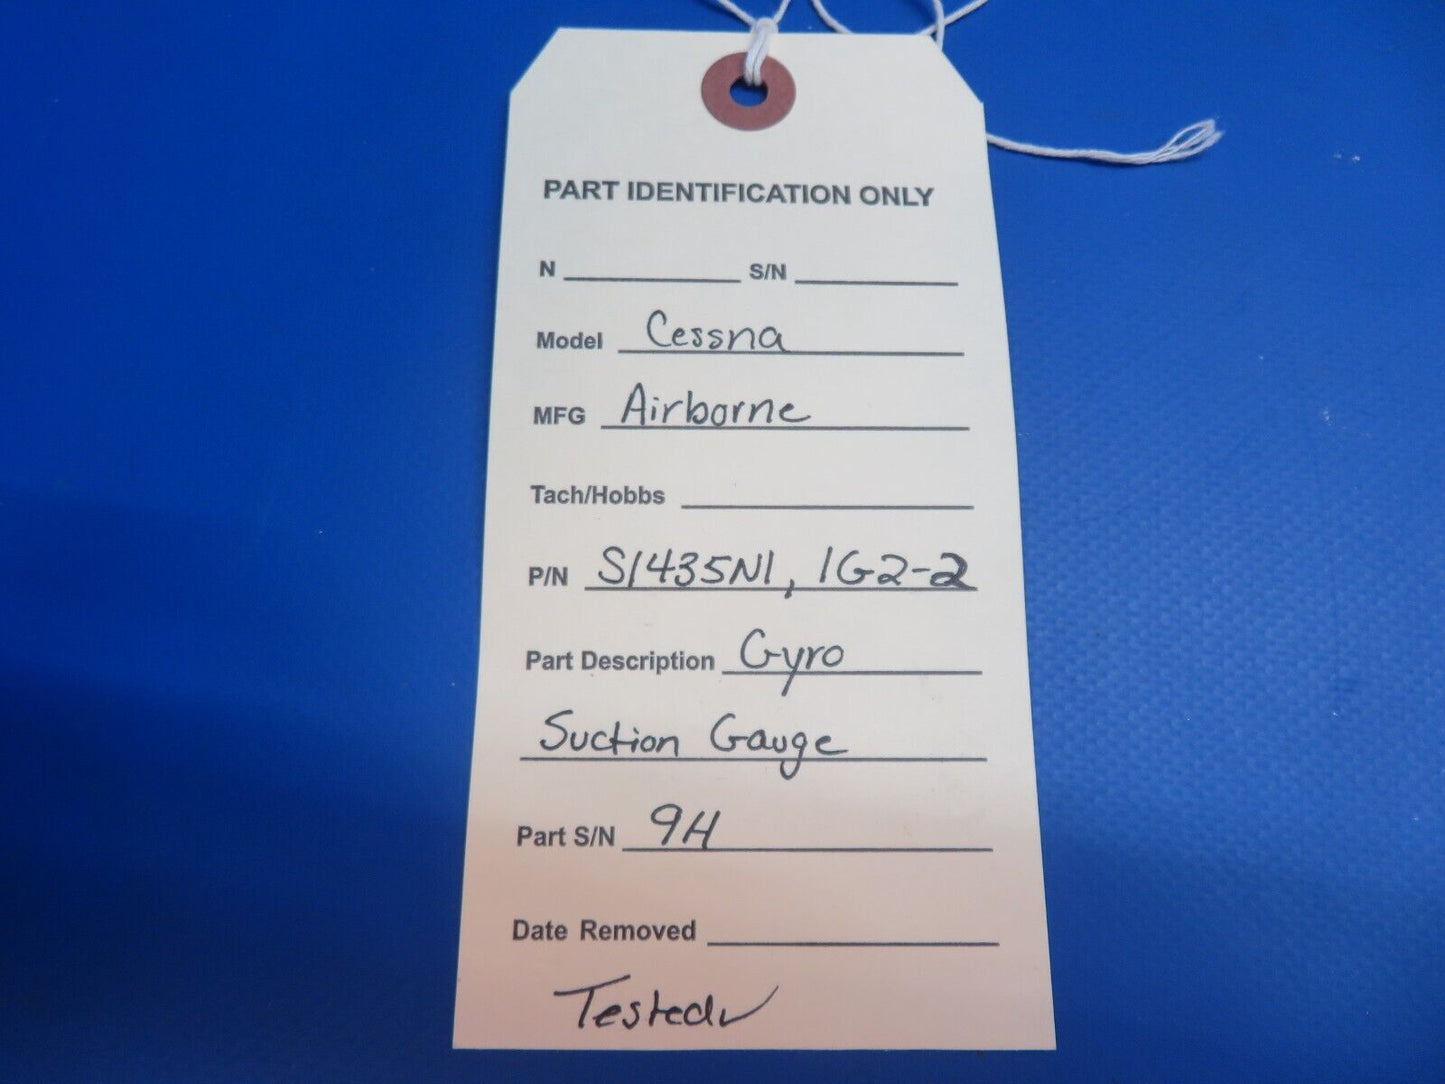 PART IDENTIFICATION ONLY
N S/N
Model Cessna
MFG Airborne
Tach/Hobbs
P/N S1435N1, 1G2-2
Part Description Gyro
Suction Gauge
Part S/N 9H
Date Removed
Tested ✓